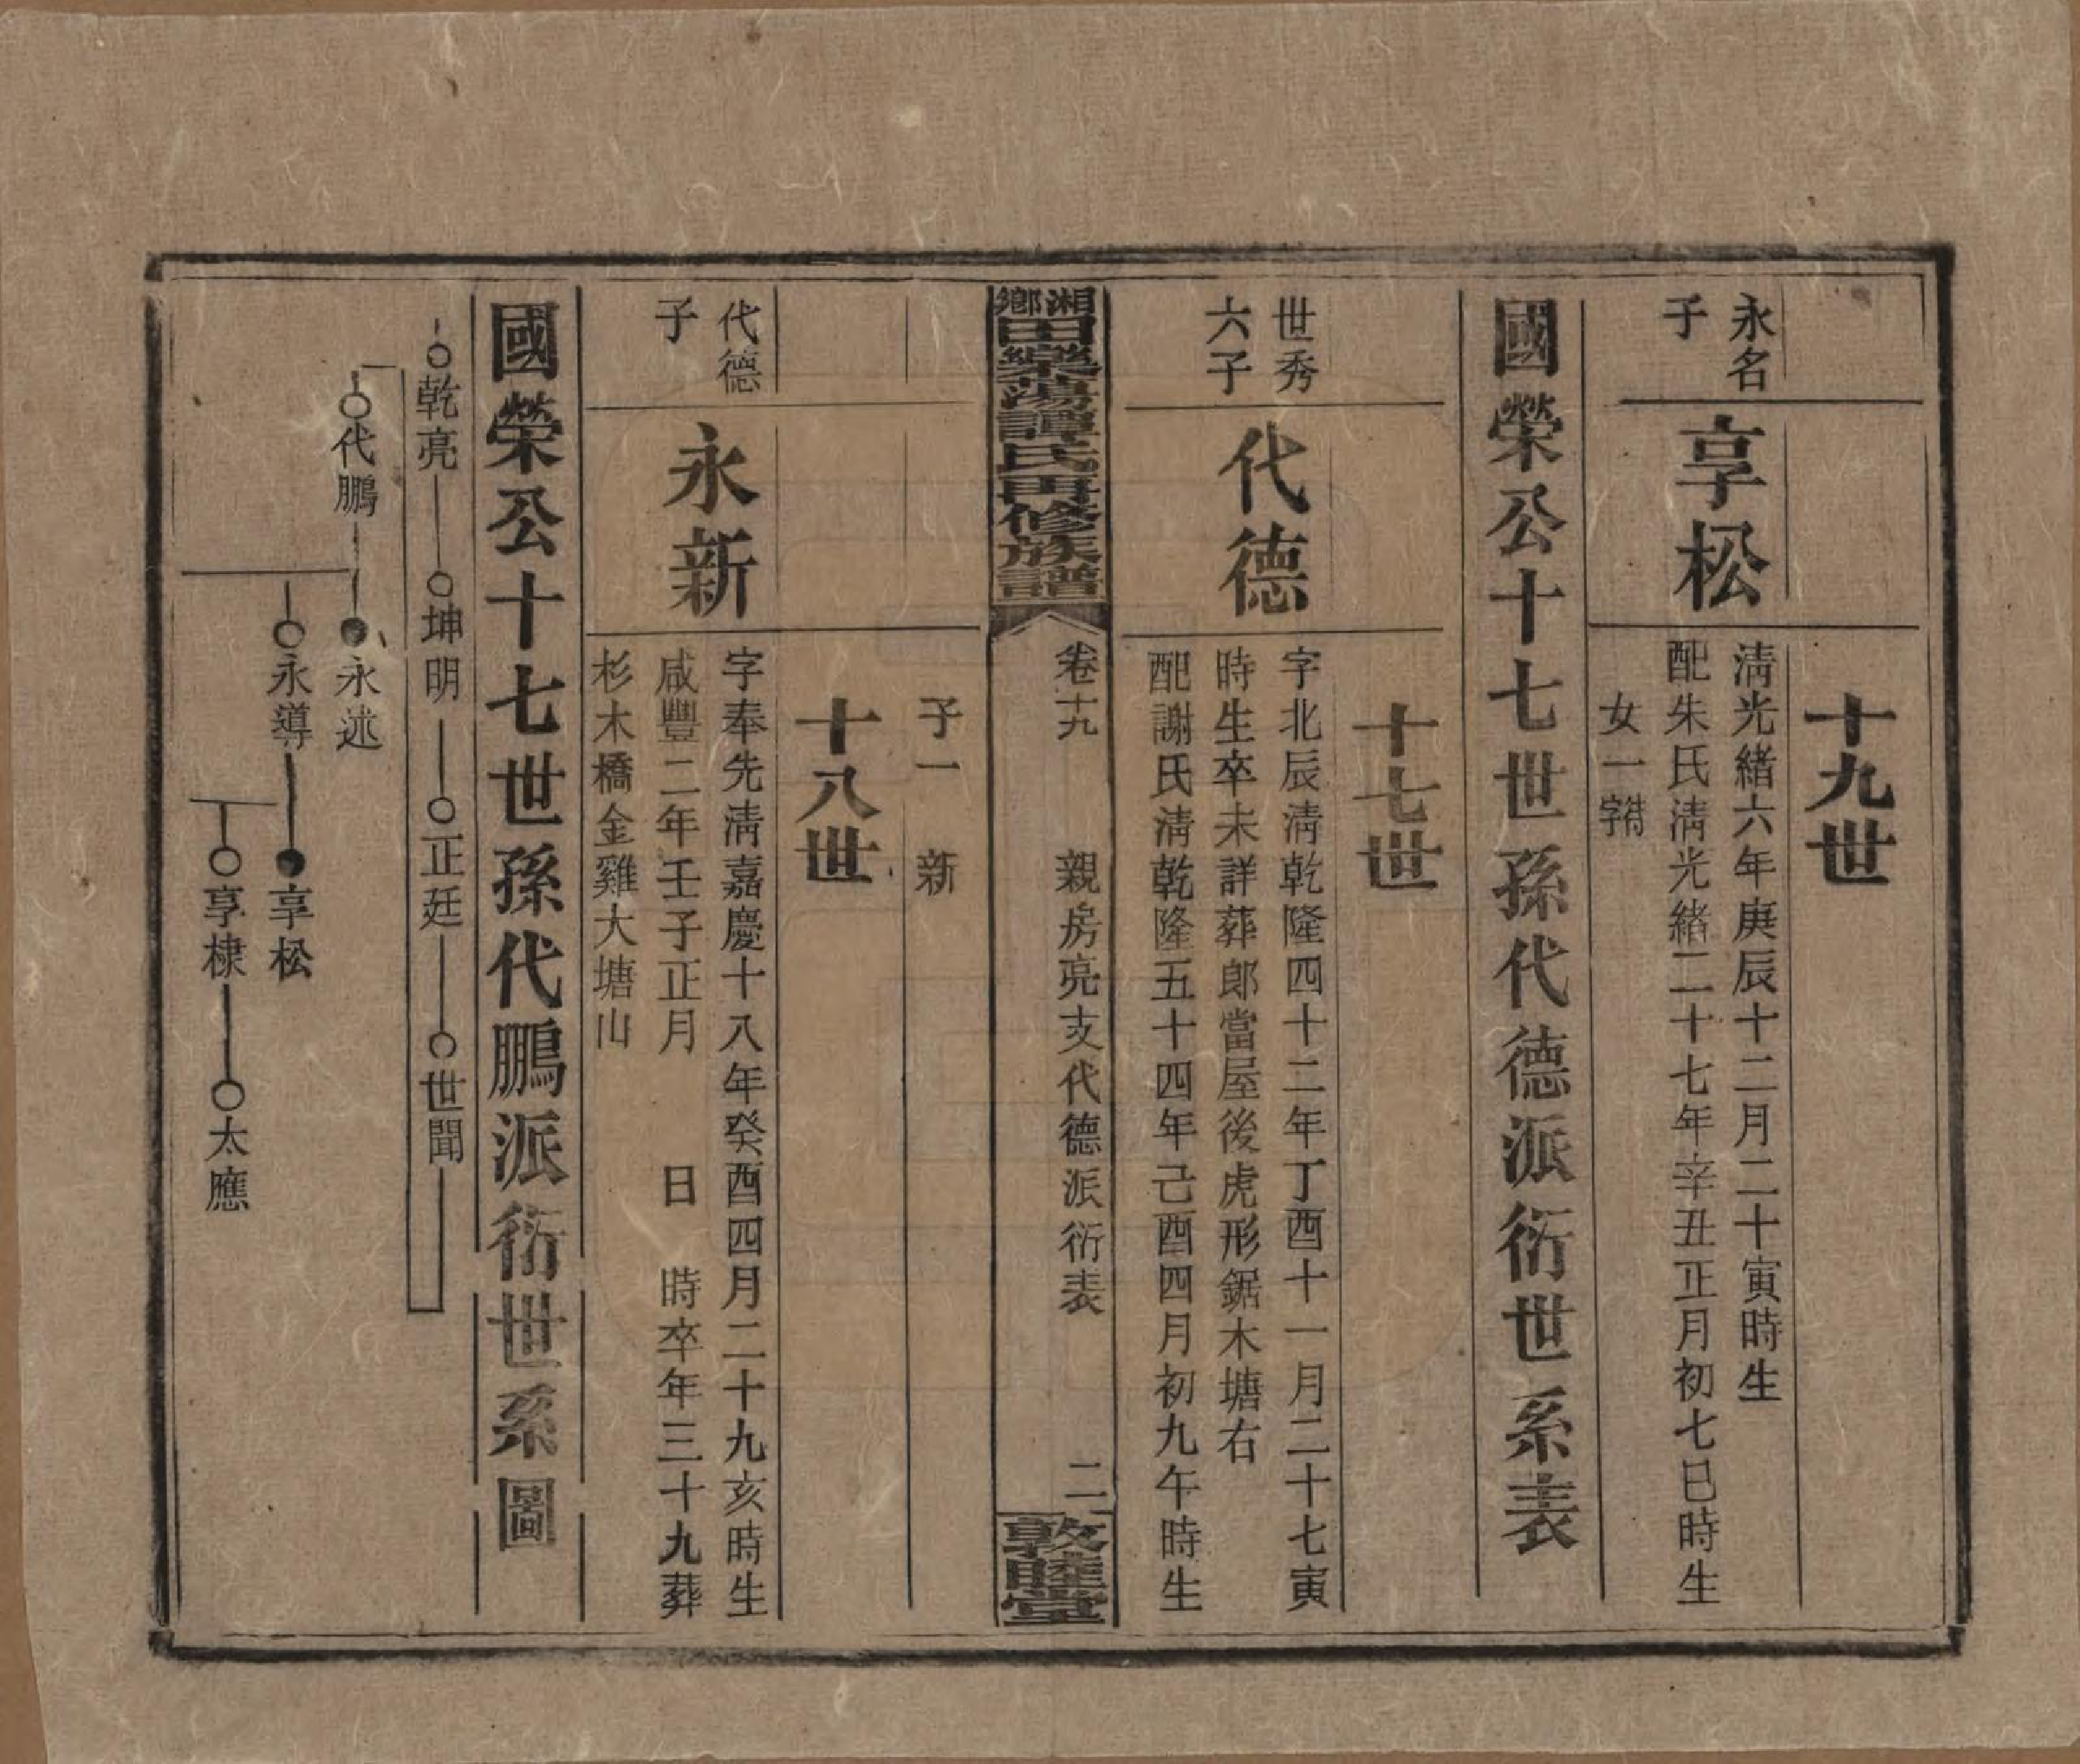 十九世
永名
子
享松
清光緒六年庚辰十二月二十寅時生
配朱氏清光緒二十七年辛丑正月初七巳時生
女一字
國榮公十七世孫代德派衍世系表
十七世
世秀
六子
代德
字北辰清乾隆四十二年丁酉十一月二十七寅
時生卒未詳葬郎當屋後虎形鋸木塘右
配謝氏清乾隆五十四年己酉四月初九午時生
湘鄉田樂蕩譚氏四修族譜
卷十九
親房亮支代德派衍表
二
敦睦堂
子一 新
十八世
代德
子
永新
字奉先清嘉慶十八年癸酉四月二十九亥時生
咸豐二年壬子正月 日 時卒年三十九葬
杉木橋金雞大塘山
國榮公十七世孫代鵬派衍世系圖
乾亮 坤明 正廷 世聞
代鵬 永述
永導 享松
享棣 太應